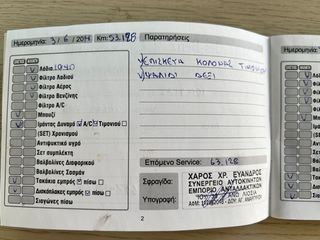 Ημερομηνία: 3/6/2014 Km: 53.128
Λάδια 10W40
Φίλτρο Λαδιού
Φίλτρο Αέρος
Φίλτρο Βενζίνης
Φίλτρο A/C
Μπουζί
Ιμάντας Δυναμό A/C Τιμονιού
(SET) Χρονισμού
Αντιψυκτικό υγρό
Σετ συμπλέκτη
Βαλβολίνες Διαφορικού
Βαλβολίνες Σασμάν
Τακάκια εμπρός πίσω
Δισκόπλακες εμπρός πίσω
Σιαγώνες πίσω
Παρατηρήσεις
ΕΠΙΣΚΕΥΗ ΚΟΛΟΝΑΣ
ΨΑΛΙΔΙ ΔΕΞΙ
Επόμενο Service: 63.128
Σφραγίδα:
Υπογραφή:
ΧΑΡΟΣ ΧΡ. ΕΥΑΝΔΡΟΣ
ΣΥΝΕΡΓΕΙΟ ΑΥΤΟΚΙΝΗΤΩΝ
ΕΜΠΟΡΙΟ ΑΝΤΑΛΛΑΚΤΙΚΩΝ
ΑΝΩ ΛΙΟΣΙΑ
ΔΟΥ: ΑΓ. ΑΝΑΡΓΥΡΩΝ
2
Ημερομηνία: